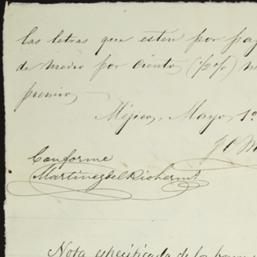 las letras que esten por pag
de medio por ciento (½%) m
premio,
Méjico, Mayo 1º
Conforme
Martinez del Rio herms
Nota especificada de los